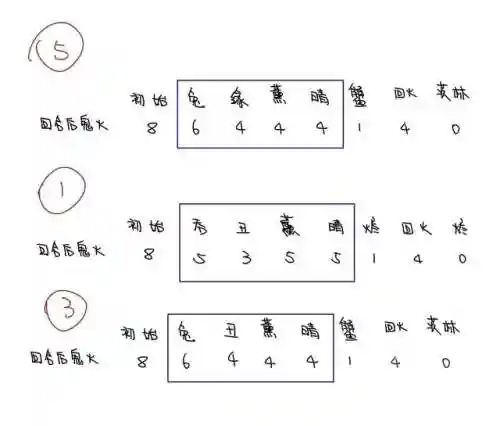 5
初始 兔 缘 薰 晴 蟹 回火 卖妹
回合后鬼火 8 6 4 4 4 1 4 0
1
初始 丑 薰 晴 烬 回火 烬
回合后鬼火 8 5 3 5 5 1 4 0
3
初始 兔 丑 薰 晴 蟹 回火 卖妹
回合后鬼火 8 6 4 4 4 1 4 0